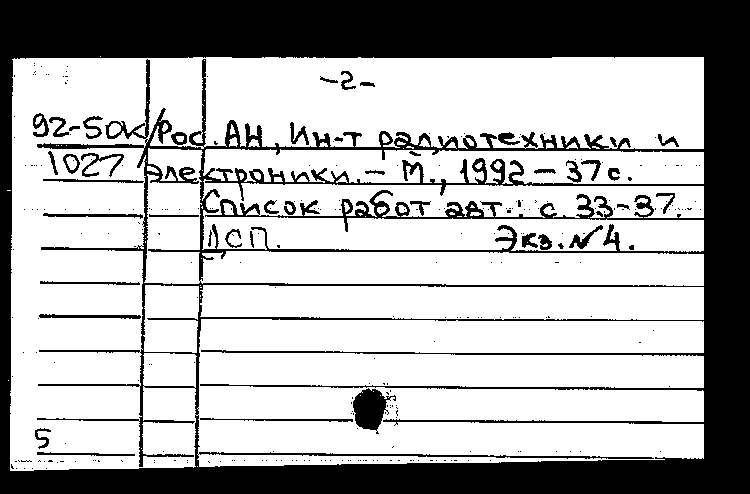 -2-
92-50к/Рос. АН, Ин-т радиотехники и
1027 электроники. - М., 1992 - 37 с.
Список работ авт.: с. 33-37.
ДСП. Экз. № 4.
5